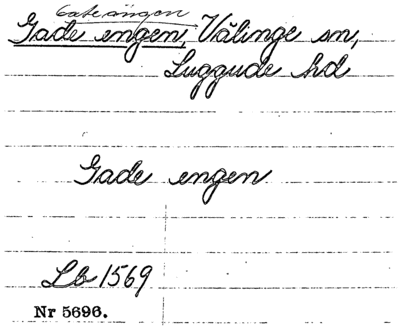 Gateängen
Gade engen, Välinge sn,
Luggude hd
Gade engen
Lb 1569
Nr 5696.